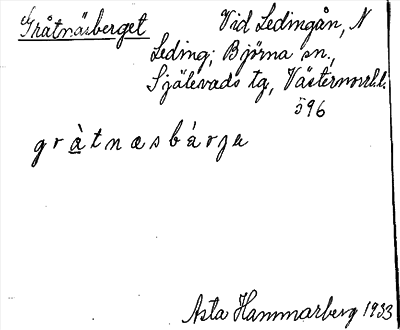 Gråtnäsberget
Vid Ledingån, N
Leding; Björna sn.,
Själevads tg, Västernorrl.l.
596
gràtnæsbárje
Asta Hammarberg 1933